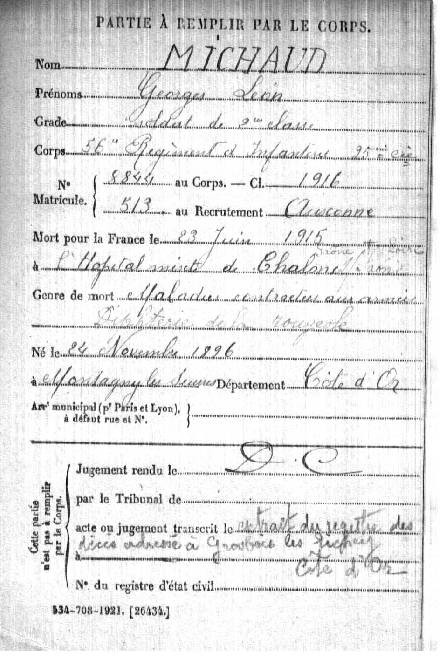 PARTIE À REMPLIR PAR LE CORPS.
Nom MICHAUD
Prénoms Georges Léon
Grade Soldat de 2me classe
Corps 56e Régiment d'Infanterie 25me Cie
N° Matricule. { 8844 au Corps. — Cl. 1916
513 au Recrutement Auxonne
Mort pour la France le 23 Juin 1915
à l'Hopital mixte de Chalons s/ Saone
Genre de mort Maladie contractée aux armées
rougeole
Né le 24 Novembre 1896
à Montagny les Seurre Département Côte d'Or
Arr¹ municipal (p¹ Paris et Lyon), à défaut rue et N°. {
Cette partie n'est pas à remplir par le Corps.
Jugement rendu le D C
par le Tribunal de
acte ou jugement transcrit le extrait du registre des
décès adressé à Grosbois les Tichey
à Côte d'Or
N° du registre d'état civil
534-708-1921. [26434.]